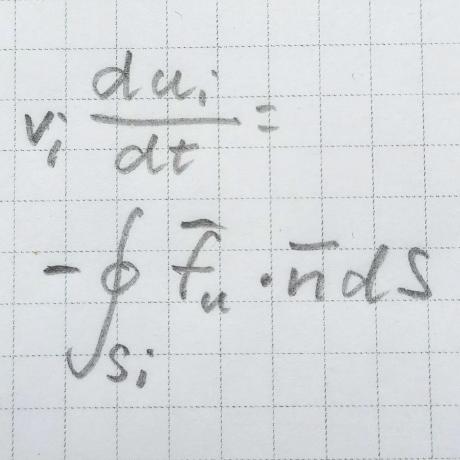 v_i \frac{du_i}{dt} =
- \oint_{S_i} \bar{f}_u \cdot \bar{n} dS